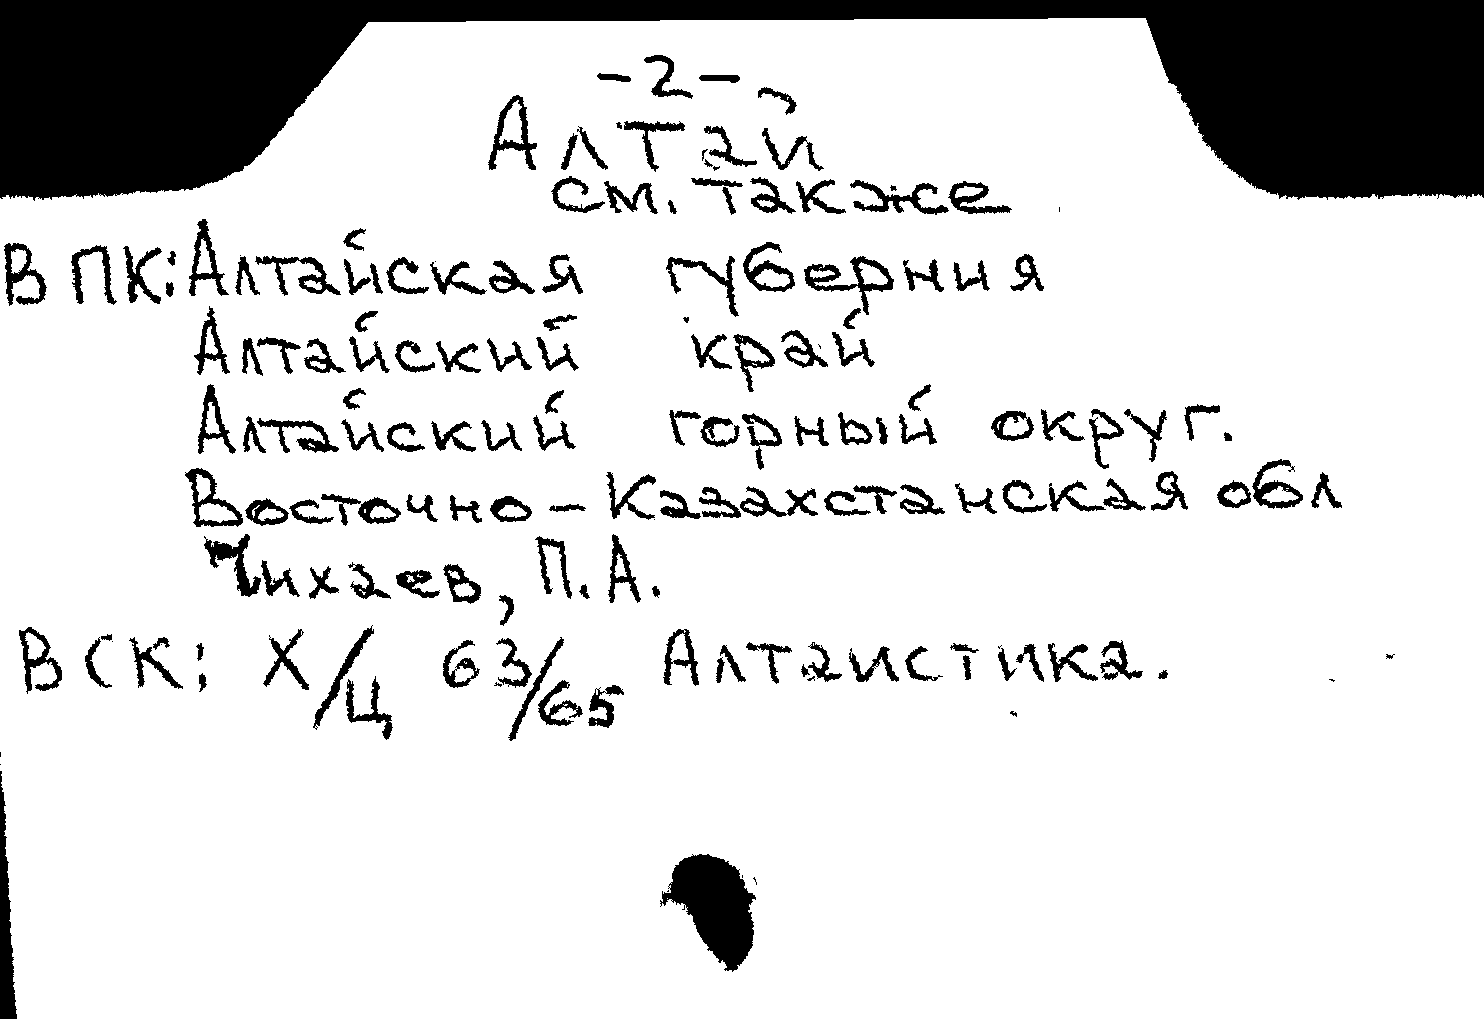 -2-
Алтай
см. также
В ПК: Алтайская губерния
Алтайский край
Алтайский горный округ.
Восточно-Казахстанская обл
Чихаев, П.А.
В СК: Х/Ц 63/65 Алтаистика.